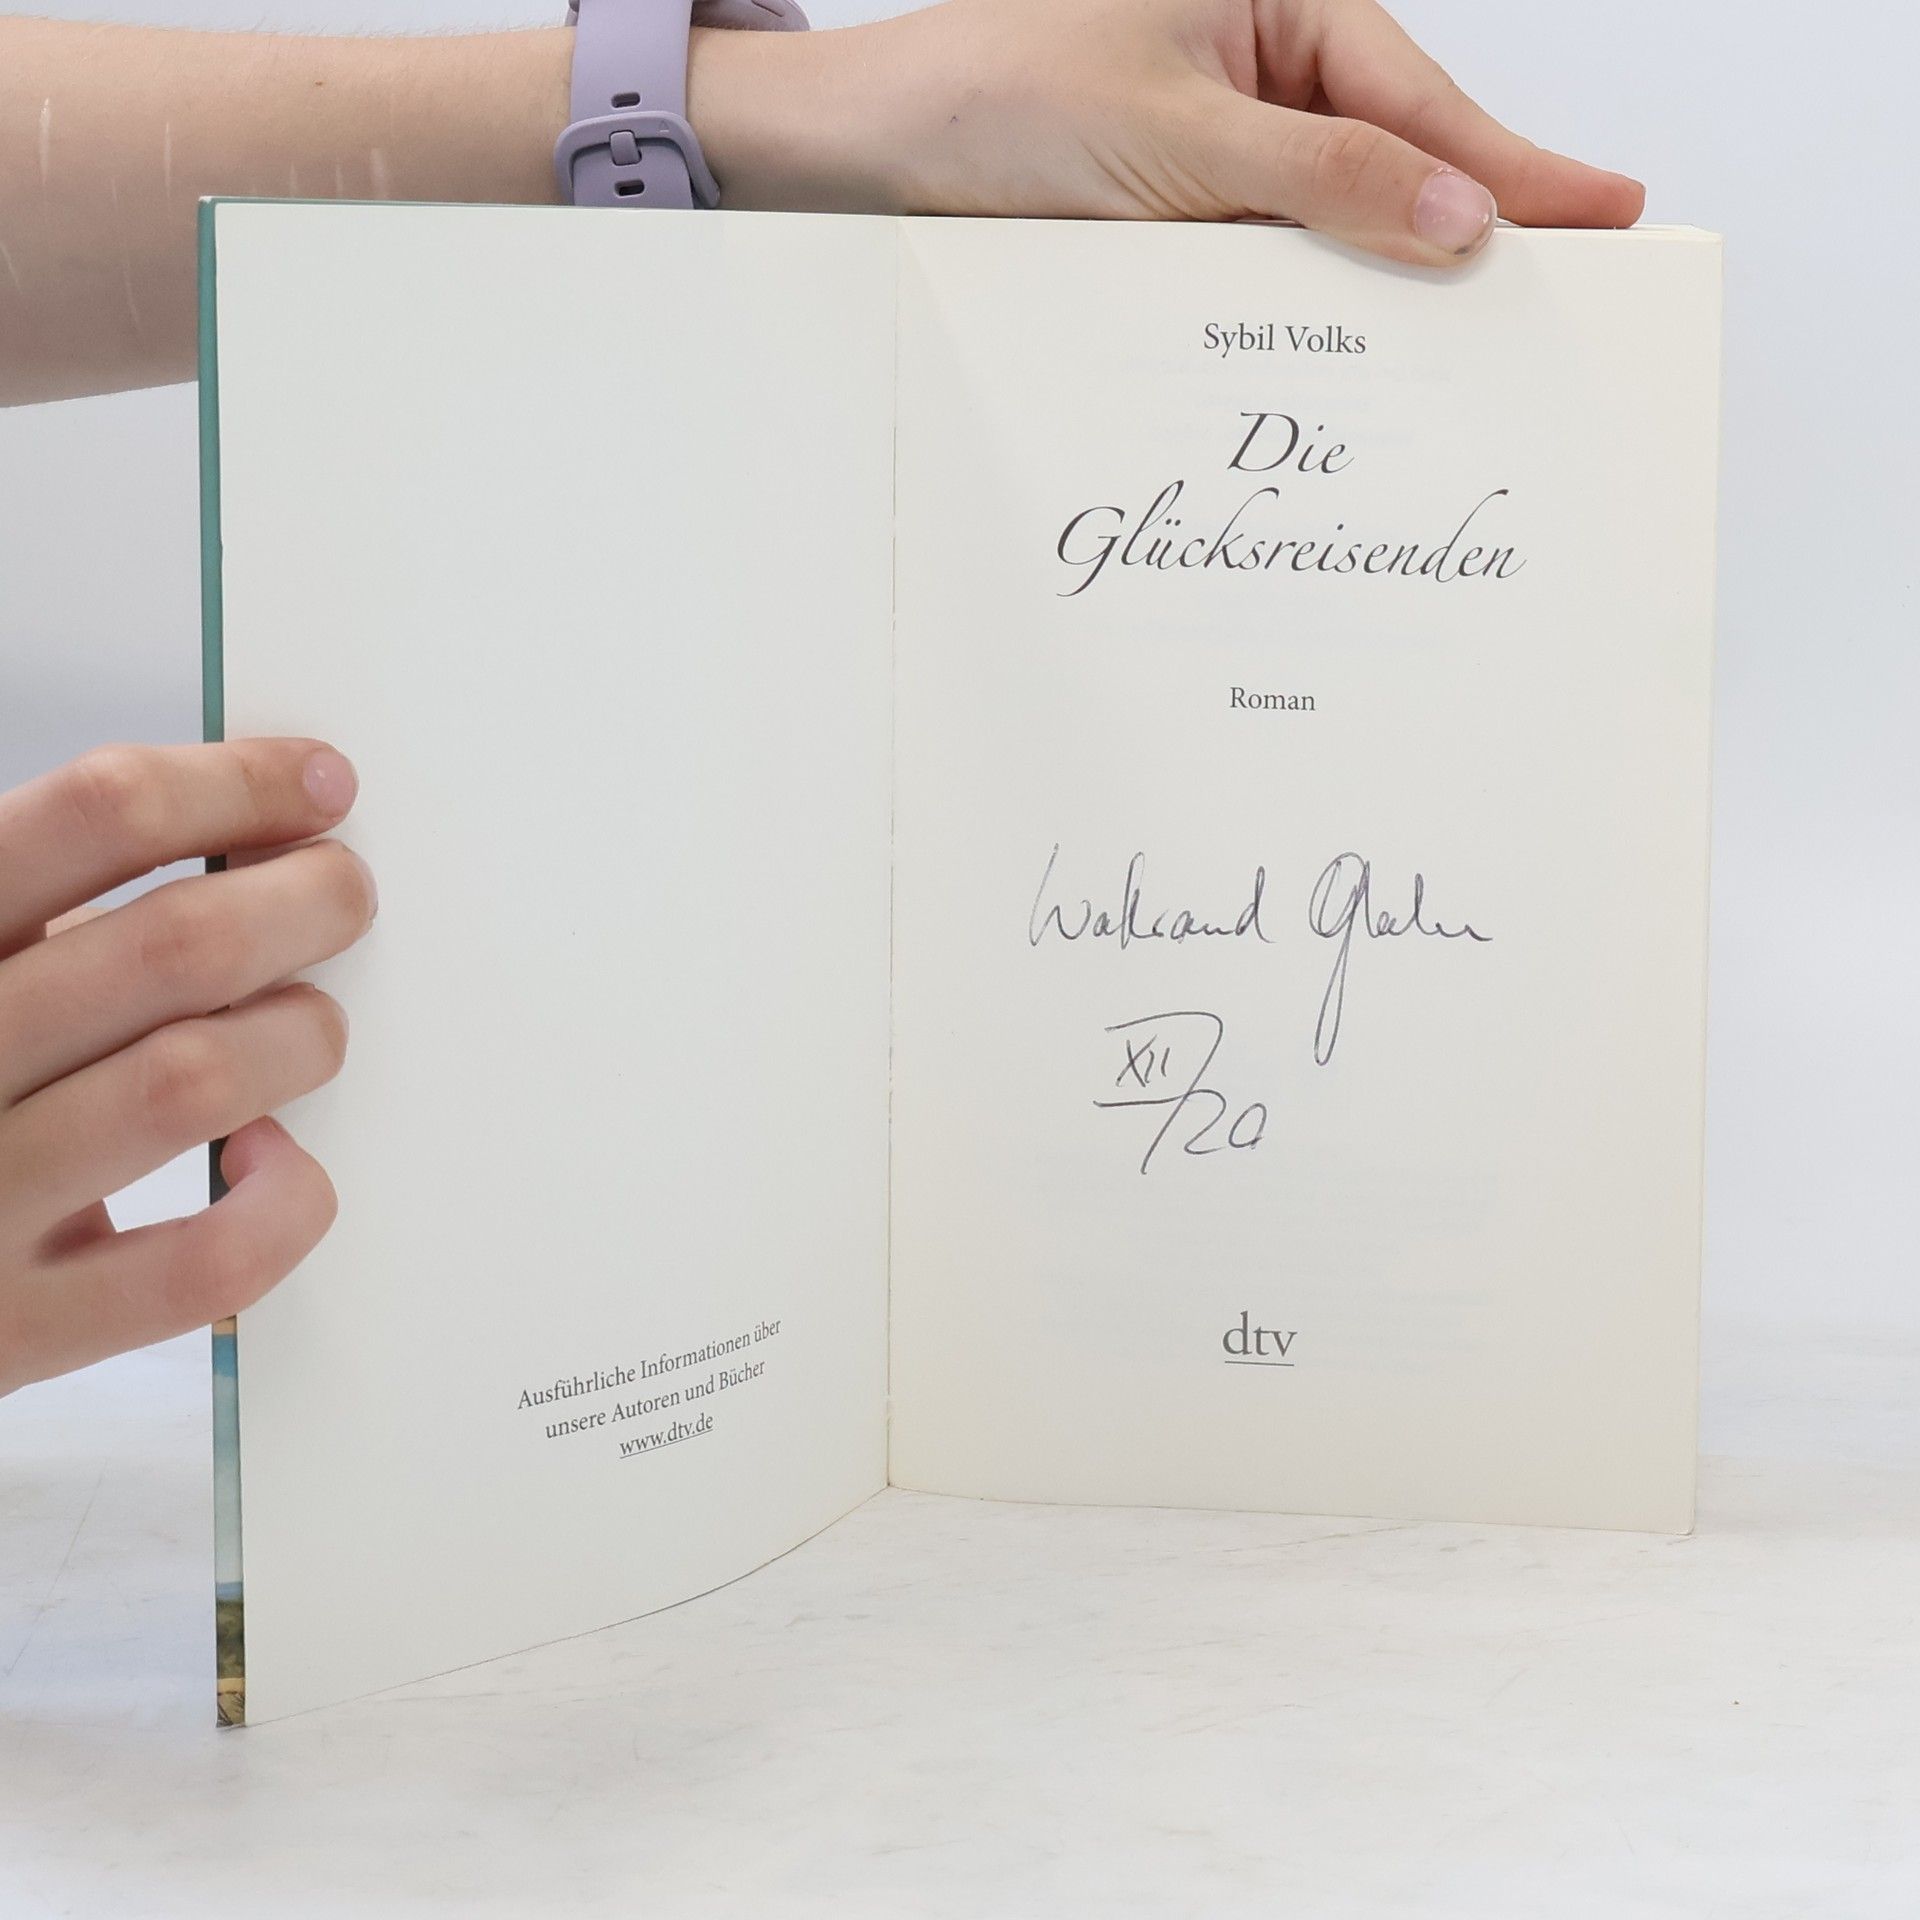 Ausführliche Informationen über
unsere Autoren und Bücher
www.dtv.de
Sybil Volks
Die
Glücksreisenden
Roman
XII
/20
dtv